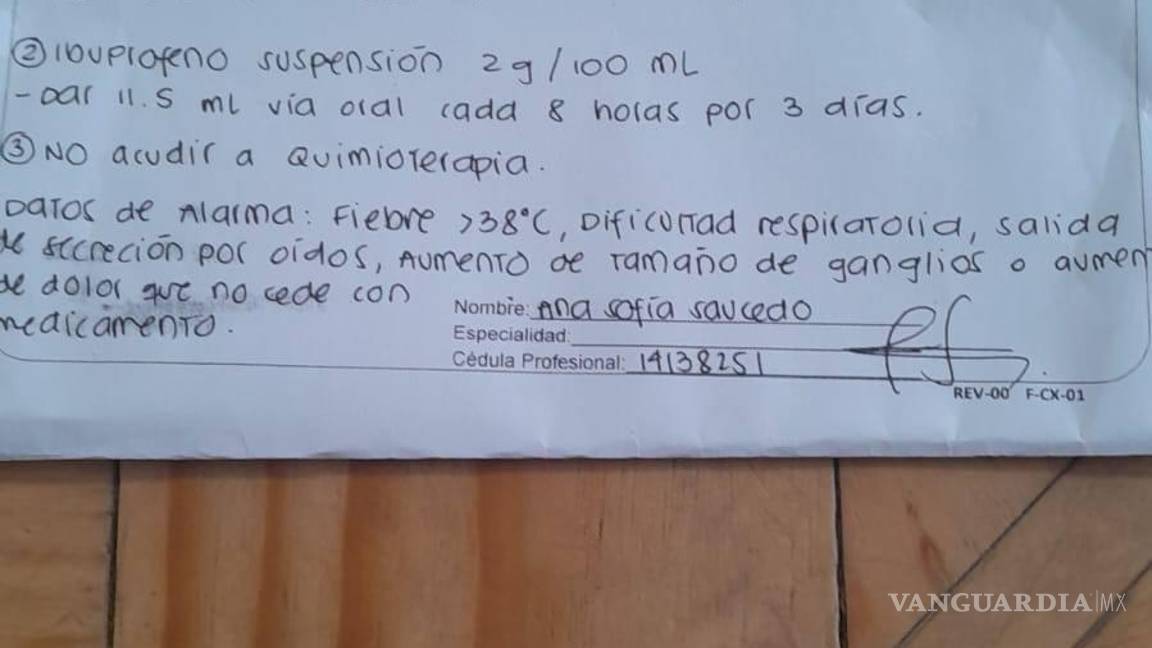 ② Ibuprofeno suspensión 2g/100 mL
- Dar 11.5 ml vía oral cada 8 horas por 3 días.
③ NO acudir a Quimioterapia.
Datos de Alarma: Fiebre >38°C, Dificultad respiratoria, salida
de secreción por oídos, Aumento de tamaño de ganglios o aumen
de dolor que no cede con
medicamento.
Nombre: Ana Sofía Saucedo
Especialidad:
Cédula Profesional: 14138251
REV-00 F-CX-01
VANGUARDIA|MX